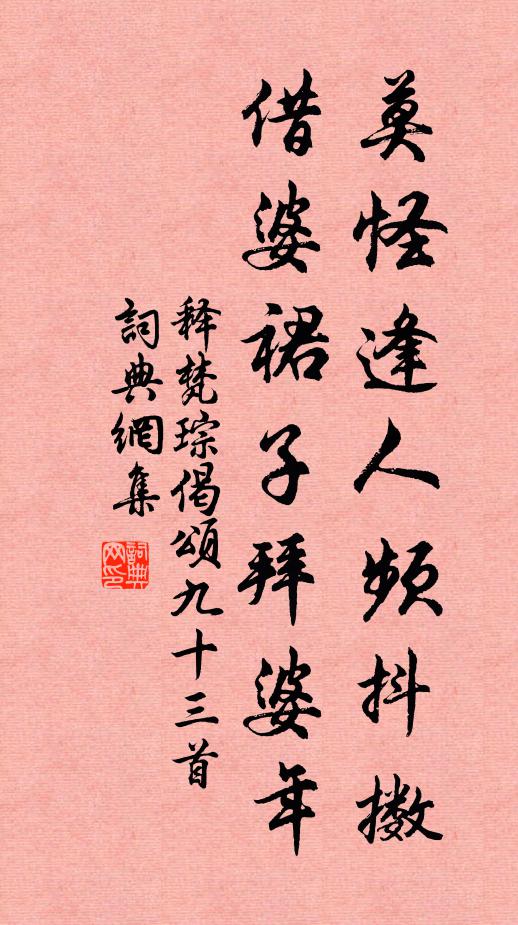 莫怪逢人频抖擞
借婆裙子拜婆年
释梵琮偈颂九十三首
詞典網集
詞典网印